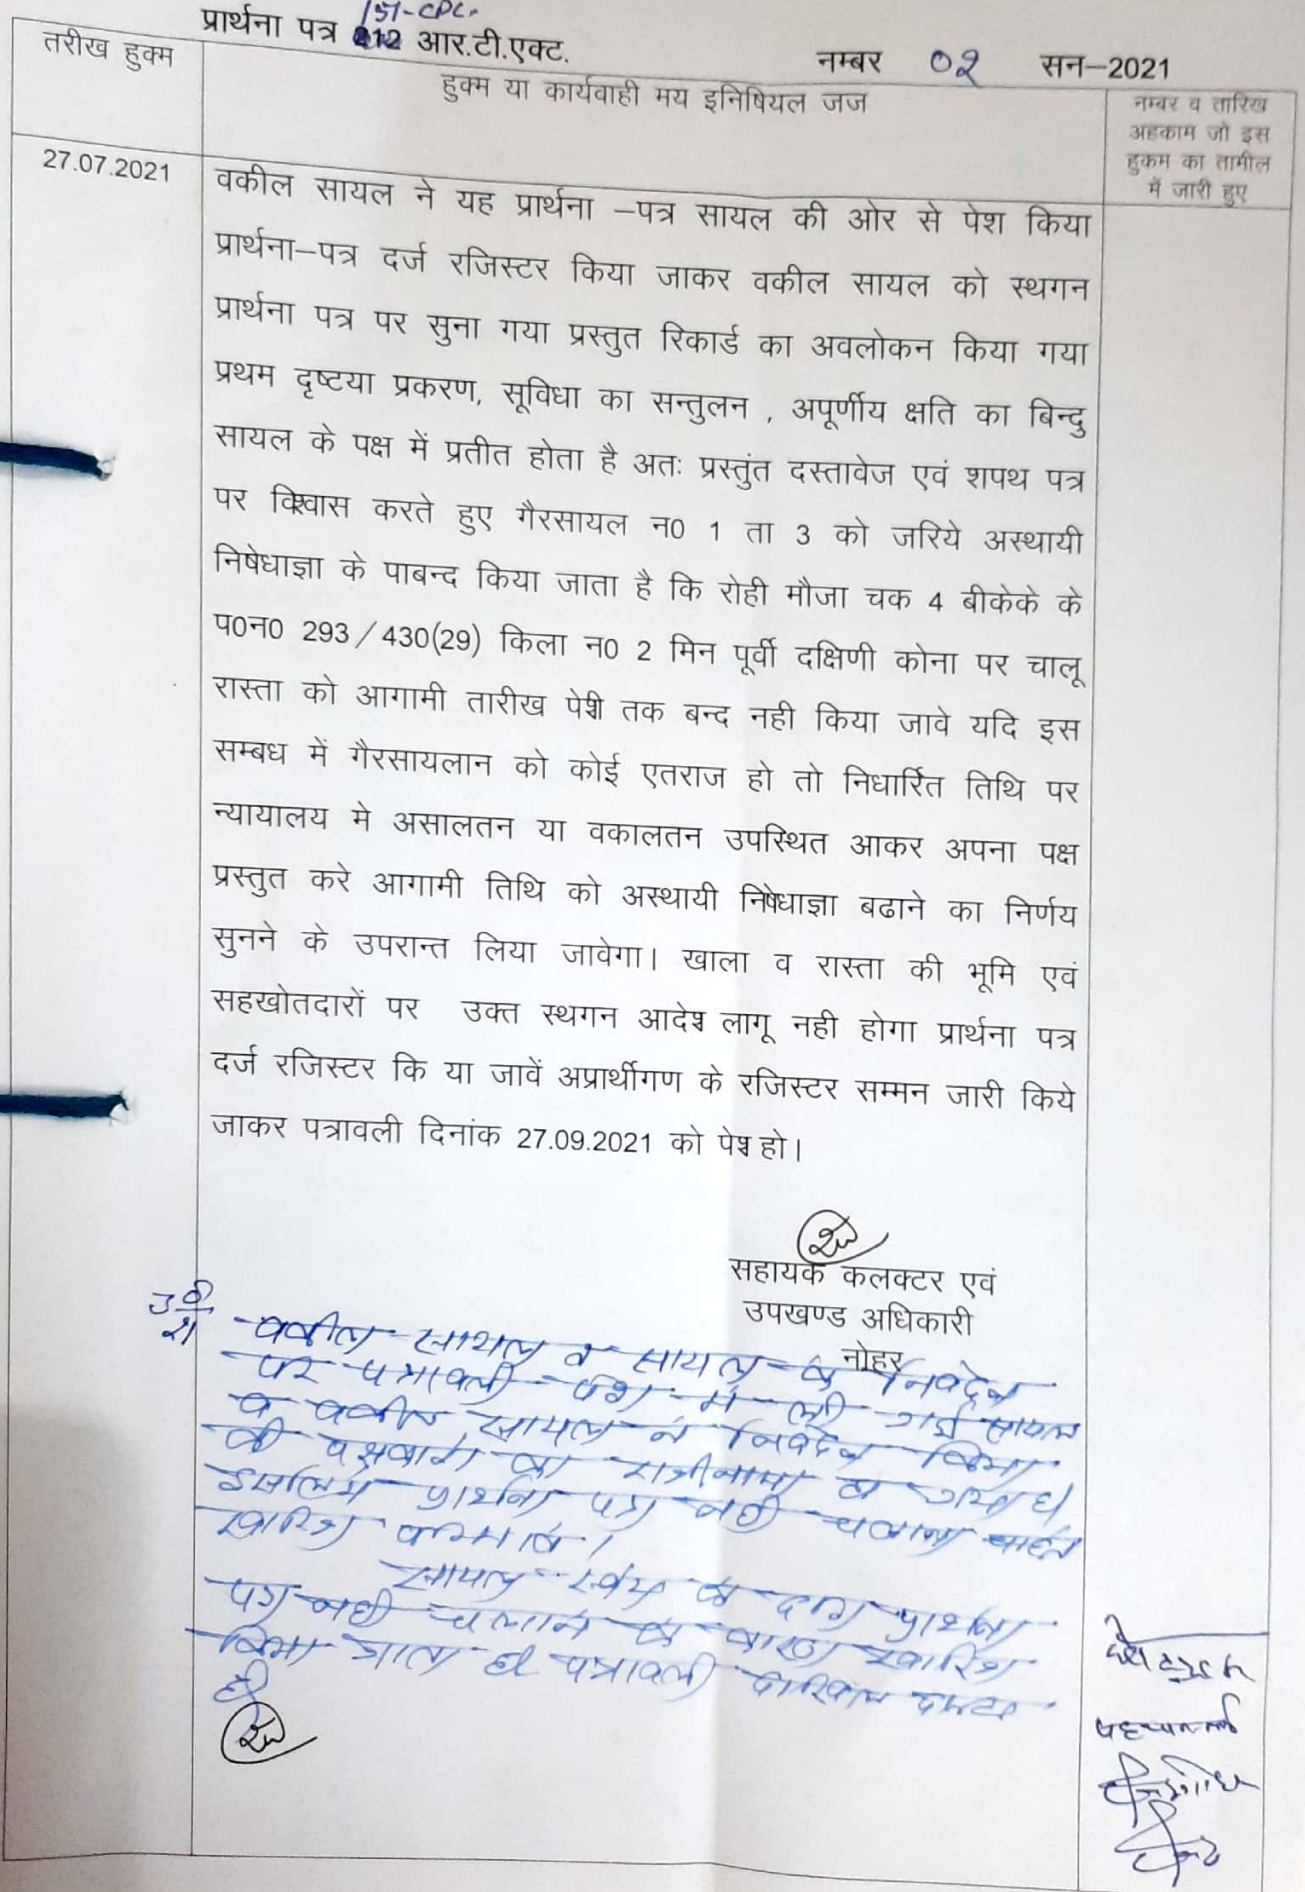 151-CPC
प्रार्थना पत्र 212 आर.टी.एक्ट. नम्बर 02 सन–2021
तरीख हुक्म
हुक्म या कार्यवाही मय इनिषियल जज
नम्बर व तारिख
अहकाम जो इस
हुकम का तामील
में जारी हुए
27.07.2021
वकील सायल ने यह प्रार्थना –पत्र सायल की ओर से पेश किया
प्रार्थना–पत्र दर्ज रजिस्टर किया जाकर वकील सायल को स्थगन
प्रार्थना पत्र पर सुना गया प्रस्तुत रिकार्ड का अवलोकन किया गया
प्रथम दृष्टया प्रकरण, सूविधा का सन्तुलन , अपूर्णीय क्षति का बिन्दु
सायल के पक्ष में प्रतीत होता है अतः प्रस्तुंत दस्तावेज एवं शपथ पत्र
पर विश्वास करते हुए गैरसायल न0 1 ता 3 को जरिये अस्थायी
निषेधाज्ञा के पाबन्द किया जाता है कि रोही मौजा चक 4 बीकेके के
प0न0 293/430(29) किला न0 2 मिन पूर्वी दक्षिणी कोना पर चालू
रास्ता को आगामी तारीख पेशी तक बन्द नही किया जावे यदि इस
सम्बध में गैरसायलान को कोई एतराज हो तो निधार्रित तिथि पर
न्यायालय मे असालतन या वकालतन उपस्थित आकर अपना पक्ष
प्रस्तुत करे आगामी तिथि को अस्थायी निषेधाज्ञा बढाने का निर्णय
सुनने के उपरान्त लिया जावेगा। खाला व रास्ता की भूमि एवं
सहखोतदारों पर उक्त स्थगन आदेश लागू नही होगा प्रार्थना पत्र
दर्ज रजिस्टर कि या जावें अप्रार्थीगण के रजिस्टर सम्मन जारी किये
जाकर पत्रावली दिनांक 27.09.2021 को पेश हो।
सहायक कलक्टर एवं
उपखण्ड अधिकारी
नोहर
वकील सायल व सायल के निवेदन
पर पत्रावली पेश में ली गई सायल
व वकील सायल ने निवेदन किया
की पक्षकारों का राजीनामा हो गया है।
इसलिये प्रार्थना पत्र नही चलाना चाहते
खारिज फरमावे।
सायल स्वंय के द्वारा प्रार्थना
पत्र नही चलाने के कारण खारिज
किया जाता है पत्रावली दाखिल दफ्तर
हो